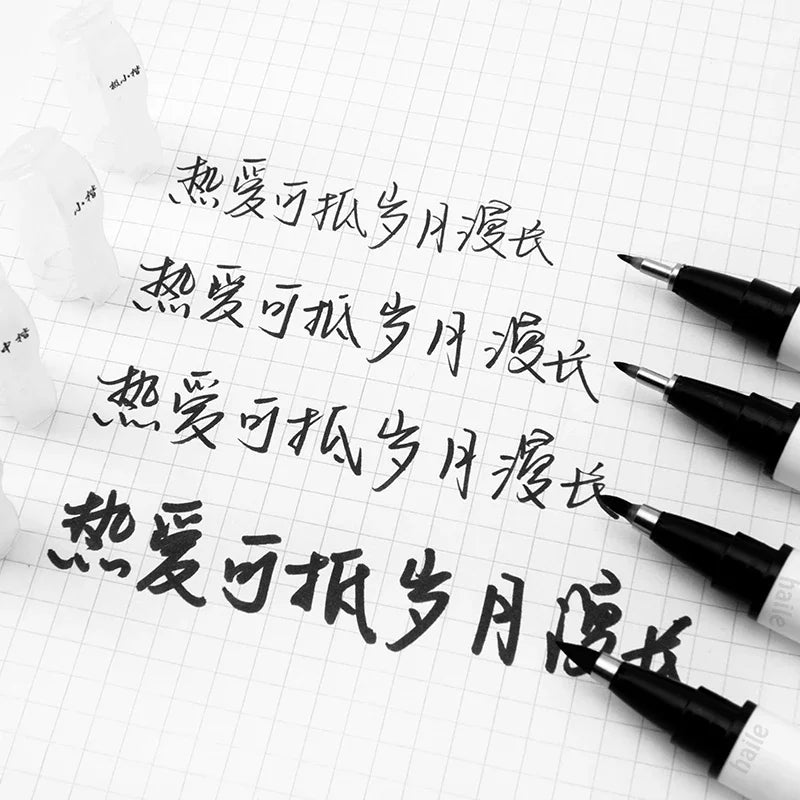 极小楷
小楷
中楷
热爱可抵岁月漫长
热爱可抵岁月漫长
热爱可抵岁月漫长
热爱可抵岁月漫长
haile
haile